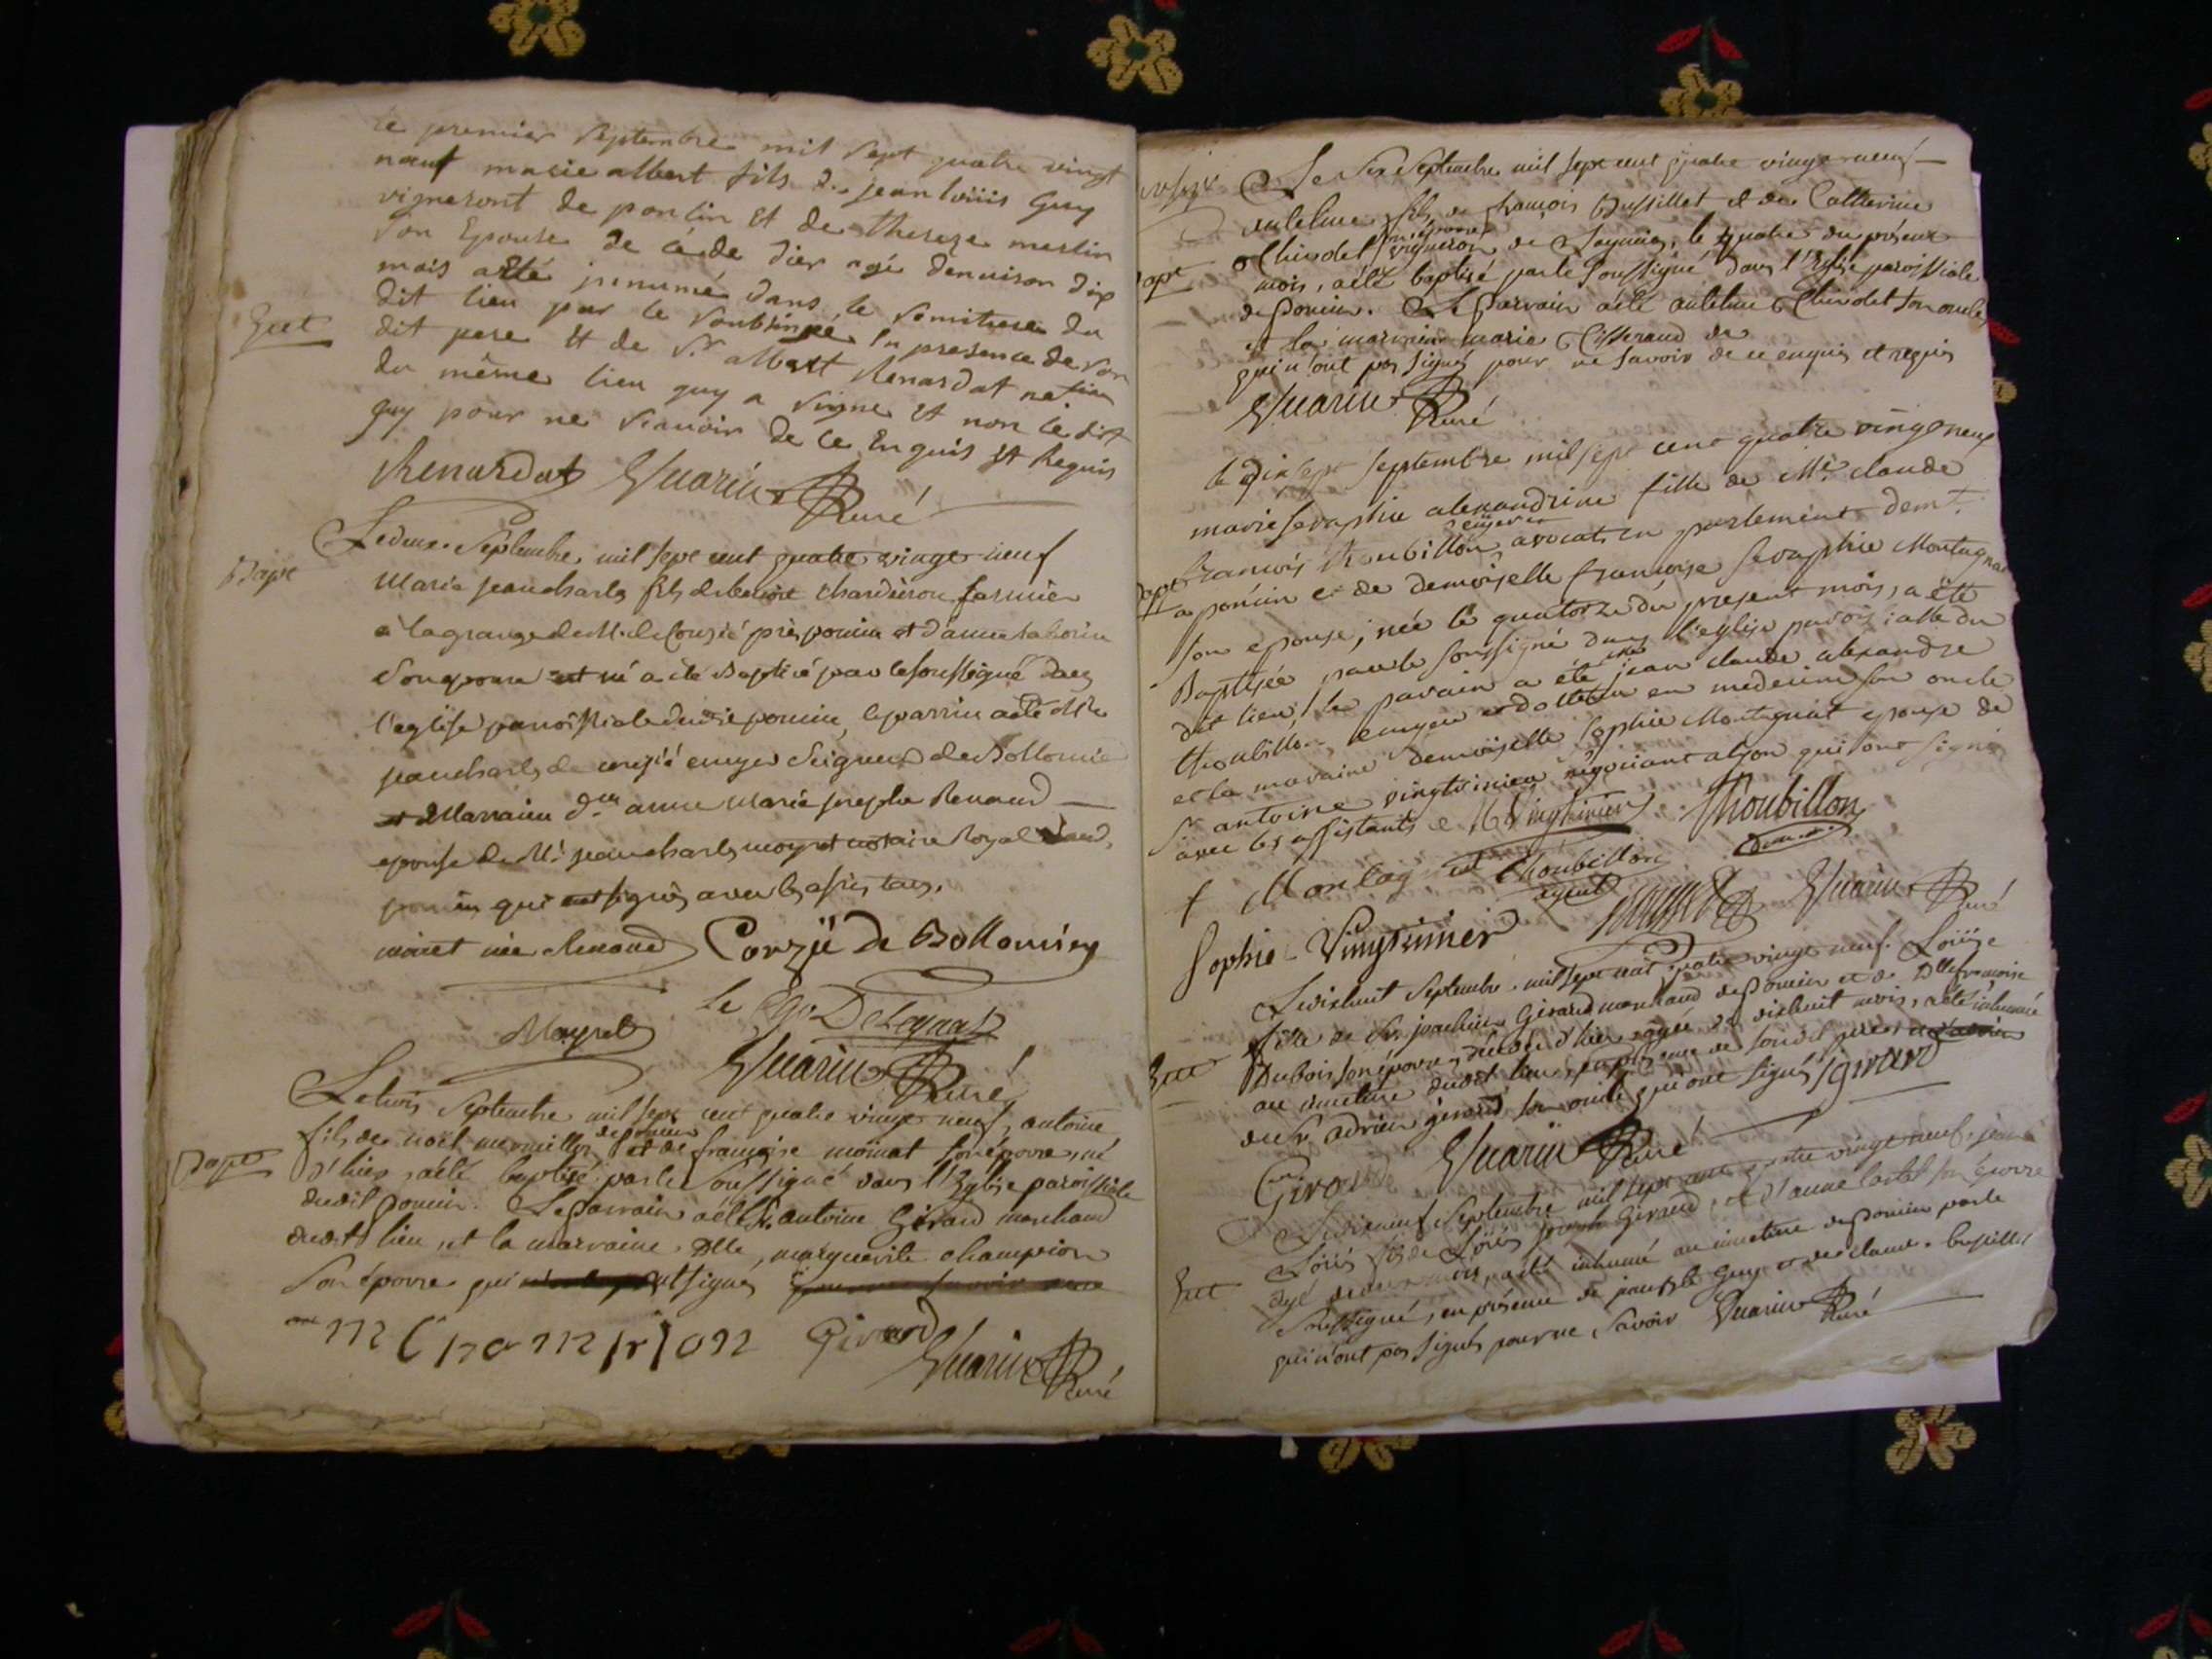 le premier Septembre mil Sept quatre vingt
neuf marie albert fils de jean loüiis Guy
vigneront de poncin Et de therese merlin
Son Epouse de cédé dier agé denuiron dix
mois a été jnnumé dans le Semitiere du
Ent
dit lieu par le Soubsigné En presence de Son
dit pere Et de Sr albert Renardat
du même lieu quy a Signe Et non le dit
guy pour ne Scauoir de ce Enquis Et Requis
Renardat Guarin Curé
Le deux Septembre mil sept cent quatre vingt neuf
Bapt
Marie jean charles fils de benoit chardeiron fermier
à la grange de M. de Conzié près poncin et d'anne
son epouse est né a été Baptisé par le soussigné dans
l'eglise paroissiale dudit poncin, le parrin a été Mre
jean charles de conzié ecuyer Seigneur de Bollomie
et Marraine dme anne Marie josephe Renaud
epouse de Me jean charles moyret notaire Royal aud.
poncin qui ont signés avec les assistans.
moiret née Renaud Conzié de Bollomier
le Cher De Leynat
Moyret
Guarin Curé
Le trois Septembre mil sept cent quatre vingt neuf, antoine
fils de noël mermillon de poncin et de françoise moinat son épouse, né
Bapt
d'hier, a été baptisé par le Soussigné dans l'Eglise paroissiale
dudit Poncin. Le Parrain a été Sr. antoine Girard marchand
dudit lieu, et la marraine Dlle, marguerite champion
Son épouse qui ont signés
Girard
Guarin Curé
Le Six Septembre mil sept cent quatre vingt neuf
antelme fils de françois Bussillet et de Catherine
Chindet son épouse vigneron de, le quatre du présent
Bapt
mois, a été baptisé par le Soussigné dans l'Eglise paroissiale
de Poncin. Le Parrain a été antelme Chindet son oncle,
et la marraine marie Tisserand de
qui n'ont pas signés pour ne savoir de ce enquis et requis
Guarin Curé
le dix sept Septembre mil sept cent quatre vingt neuf
marie seraphie alexandrine fille de Me. claude
françois Thoubillon ecuyer avocat en parlement demt.
Bapt
a poncin et de demoiselle françoise seraphie Montagnat
son epouse, née le quatorze du present mois, a été
Baptisée par le soussigné dans l'eglise paroissialle du
dit lieu, le parain a été jean claude alexandre
thoubillon ecuyer et docteur en medecine son oncle
et la maraine demoiselle sophie Montagnat epouse de
Sr antoine vingtrinier négociant a lyon qui ont signés
avec les assistants Vingtrinier Thoubillon
Montag Thoubillon
Sophie Vingtrinier Guarin Curé
Le dixhuit Septembre mil sept cent quatre vingt neuf. Loüise
fille de Sr. joachim Girard marchand de Poncin et de Dlle françoise
Dubois son épouse, décédée d'hier agée de dixhuit mois, a été inhumée
Ent
au cimetiere dudit lieu, en presence de son dit pere
du Sr. adrien girard son oncle qui ont signés girard
Girard Guarin Curé
Le dixneuf Septembre mil sept cent quatre vingt neuf, jean
Loüis fils de Loüis joseph Girard, et d'anne son épouse
Ent
agé de mois, a été inhumé au cimetiere de Poncin par le
Soussigné, en présence de Guy et de claude bussillet
qui n'ont pas signés pour ne savoir Guarin Curé